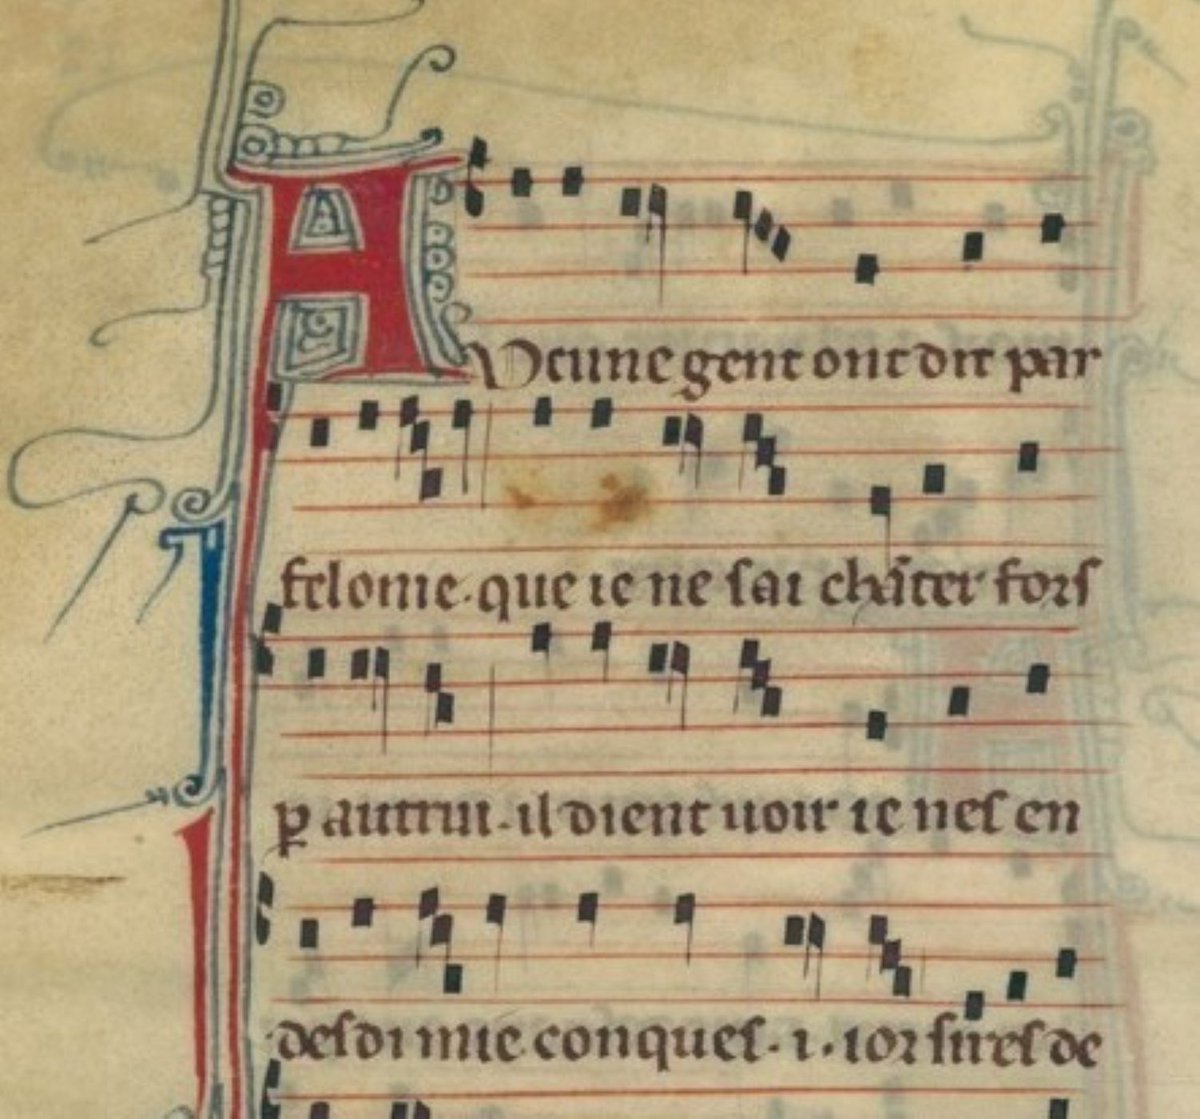 AUcune gent ont dit par
felonie. que ie ne sai chāter fors
ꝑ autrui. il dient uoir ie nes en
desdi mie conques. i. ior sires de